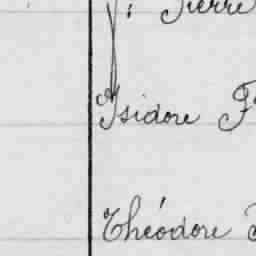 Pierre
Isidore F
Théodore